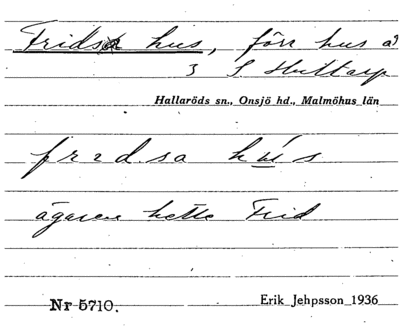 Frids hus, förr hus å
3 S. Hultarp
Hallaröds sn., Onsjö hd., Malmöhus län
fred.sa hus
ägaren hette Frid
Nr 5710. Erik Jehpsson 1936